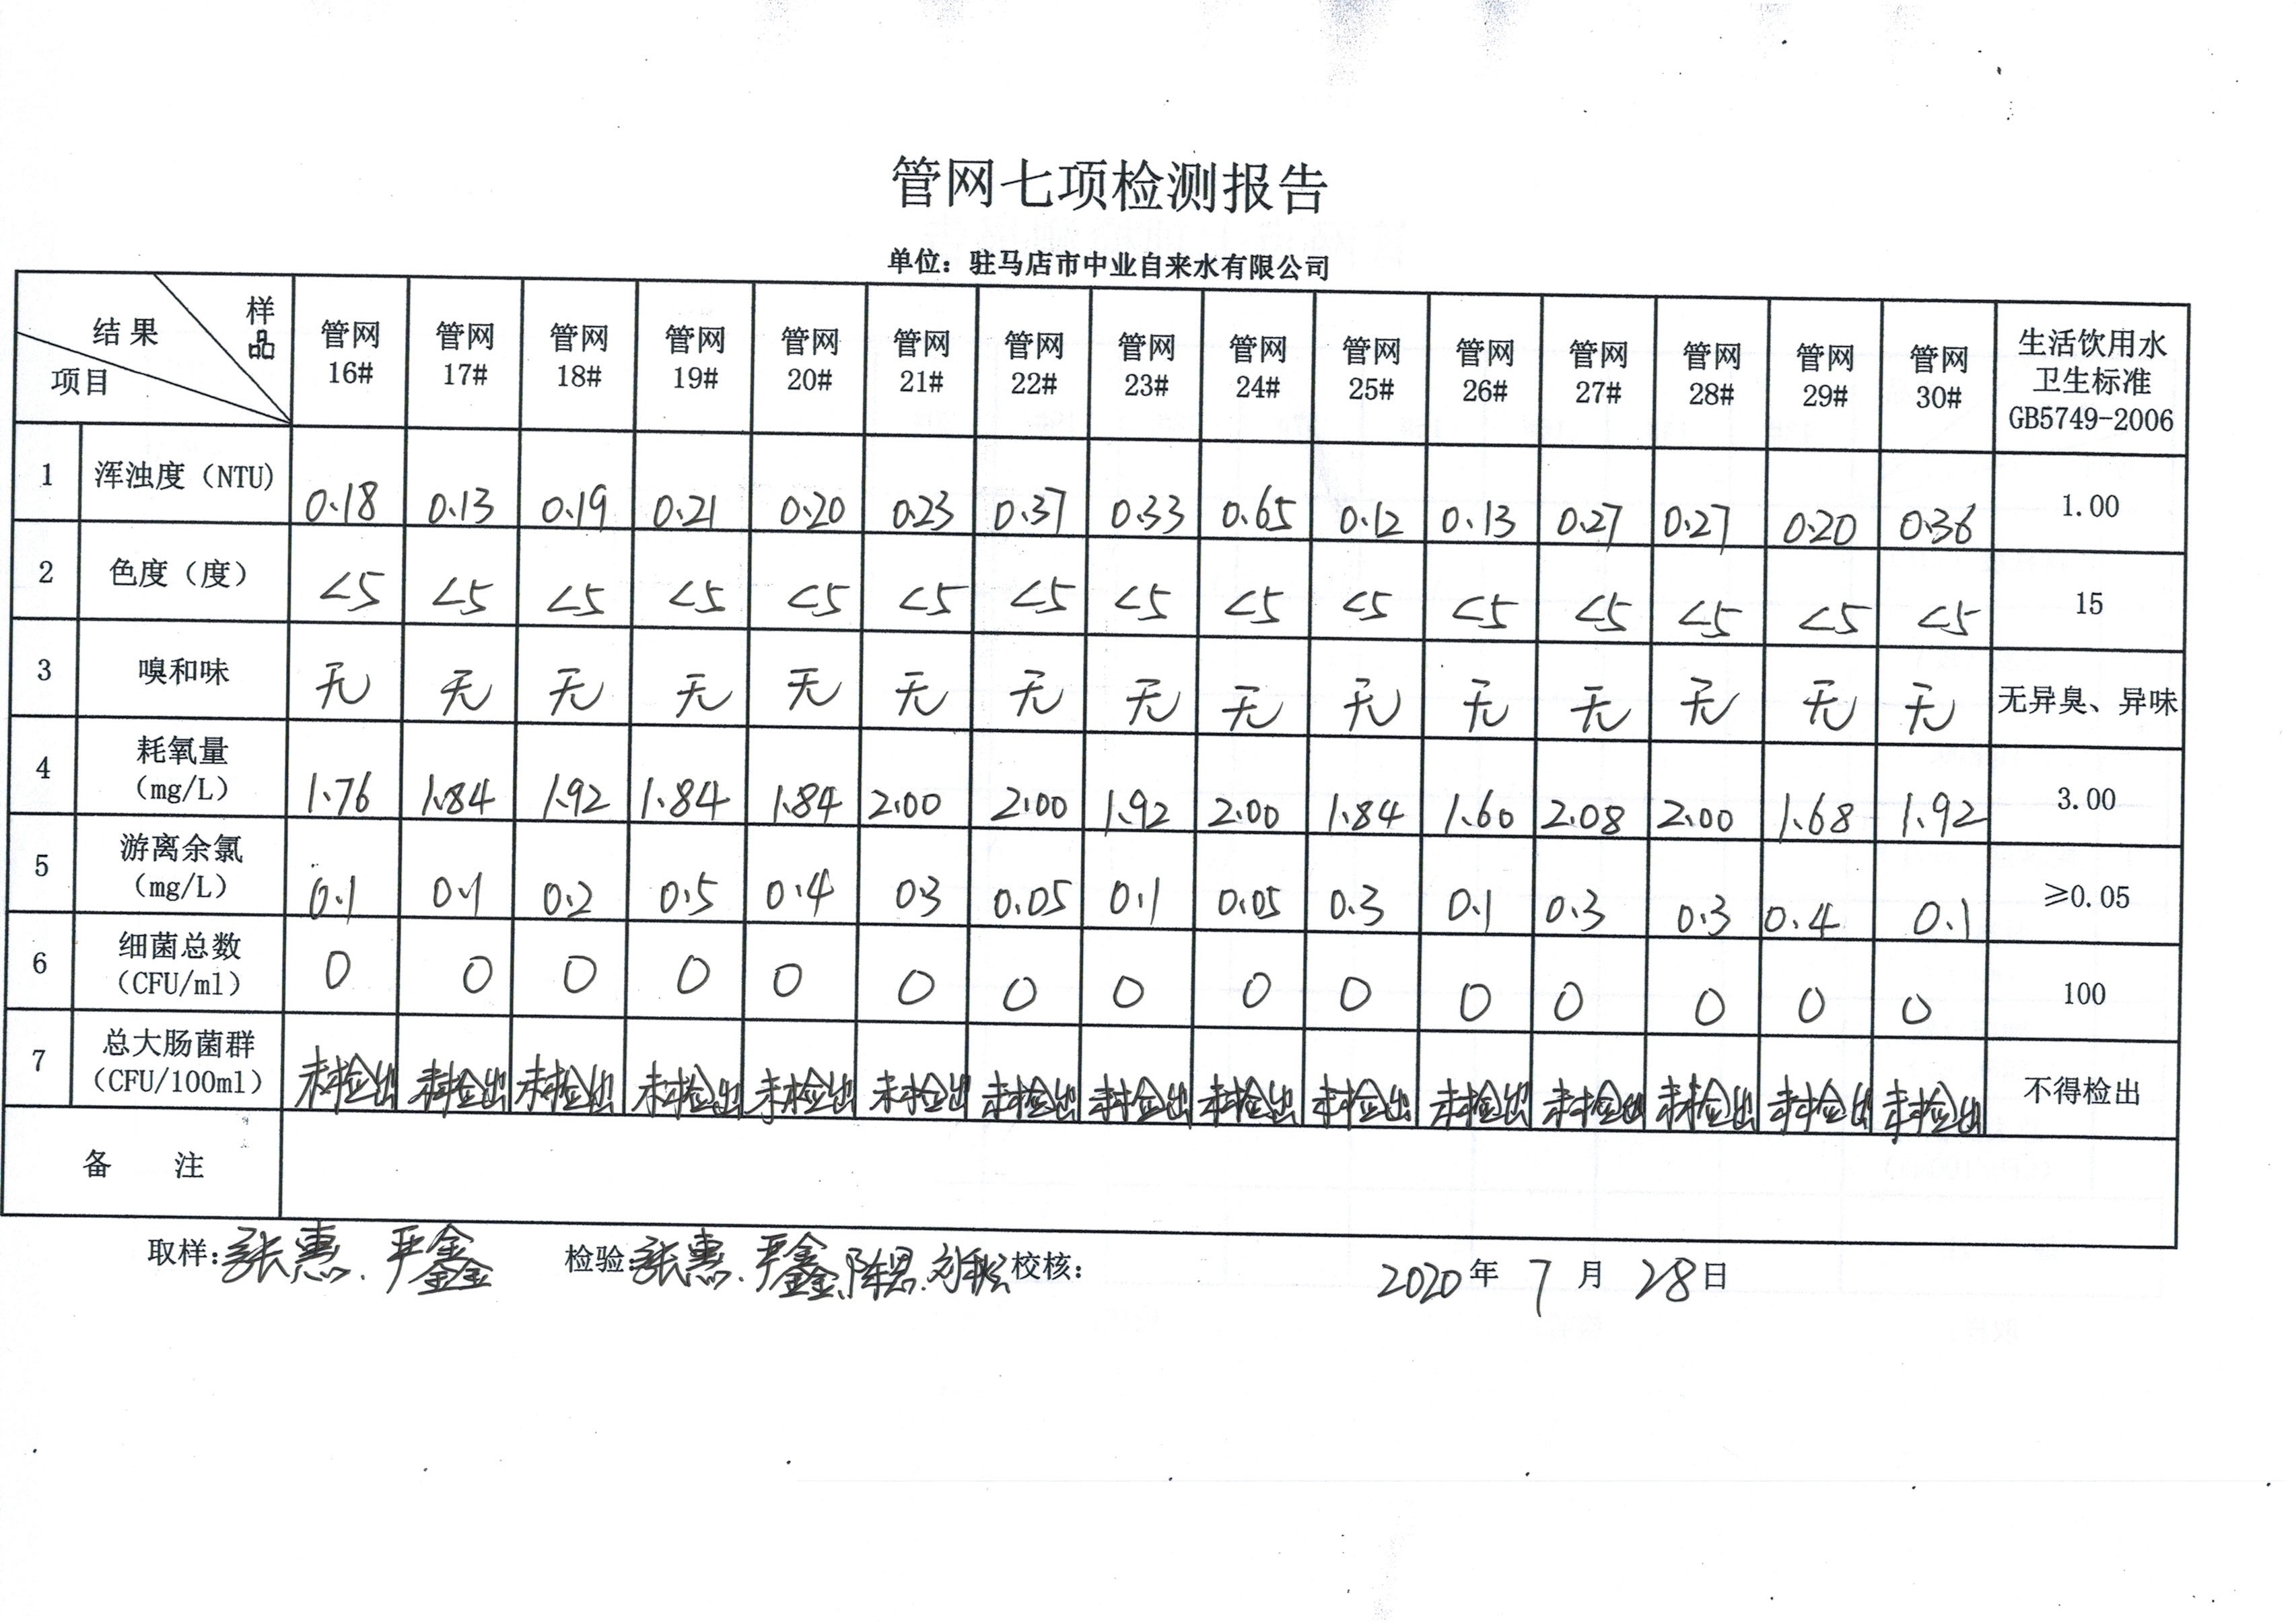 管网七项检测报告
单位：驻马店市中业自来水有限公司
结果 样品 项目 管网16# 管网17# 管网18# 管网19# 管网20# 管网21# 管网22# 管网23# 管网24# 管网25# 管网26# 管网27# 管网28# 管网29# 管网30# 生活饮用水卫生标准GB5749-2006
1 浑浊度（NTU) 0.18 0.13 0.19 0.21 0.20 0.23 0.37 0.33 0.65 0.12 0.13 0.27 0.27 0.20 0.36 1.00
2 色度（度） <5 <5 <5 <5 <5 <5 <5 <5 <5 <5 <5 <5 <5 <5 <5 15
3 嗅和味 无 无 无 无 无 无 无 无 无 无 无 无 无 无 无 无异臭、异味
4 耗氧量（mg/L） 1.76 1.84 1.92 1.84 1.84 2.00 2.00 1.92 2.00 1.84 1.60 2.08 2.00 1.68 1.92 3.00
5 游离余氯（mg/L） 0.1 0.1 0.2 0.5 0.4 0.3 0.05 0.1 0.05 0.3 0.1 0.3 0.3 0.4 0.1 ≥0.05
6 细菌总数（CFU/ml） 0 0 0 0 0 0 0 0 0 0 0 0 0 0 0 100
7 总大肠菌群（CFU/100ml） 未检出 未检出 未检出 未检出 未检出 未检出 未检出 未检出 未检出 未检出 未检出 未检出 未检出 未检出 未检出 不得检出
备 注
取样：张惠、严鑫 检验：张惠、严鑫、校核： 2020年7月28日